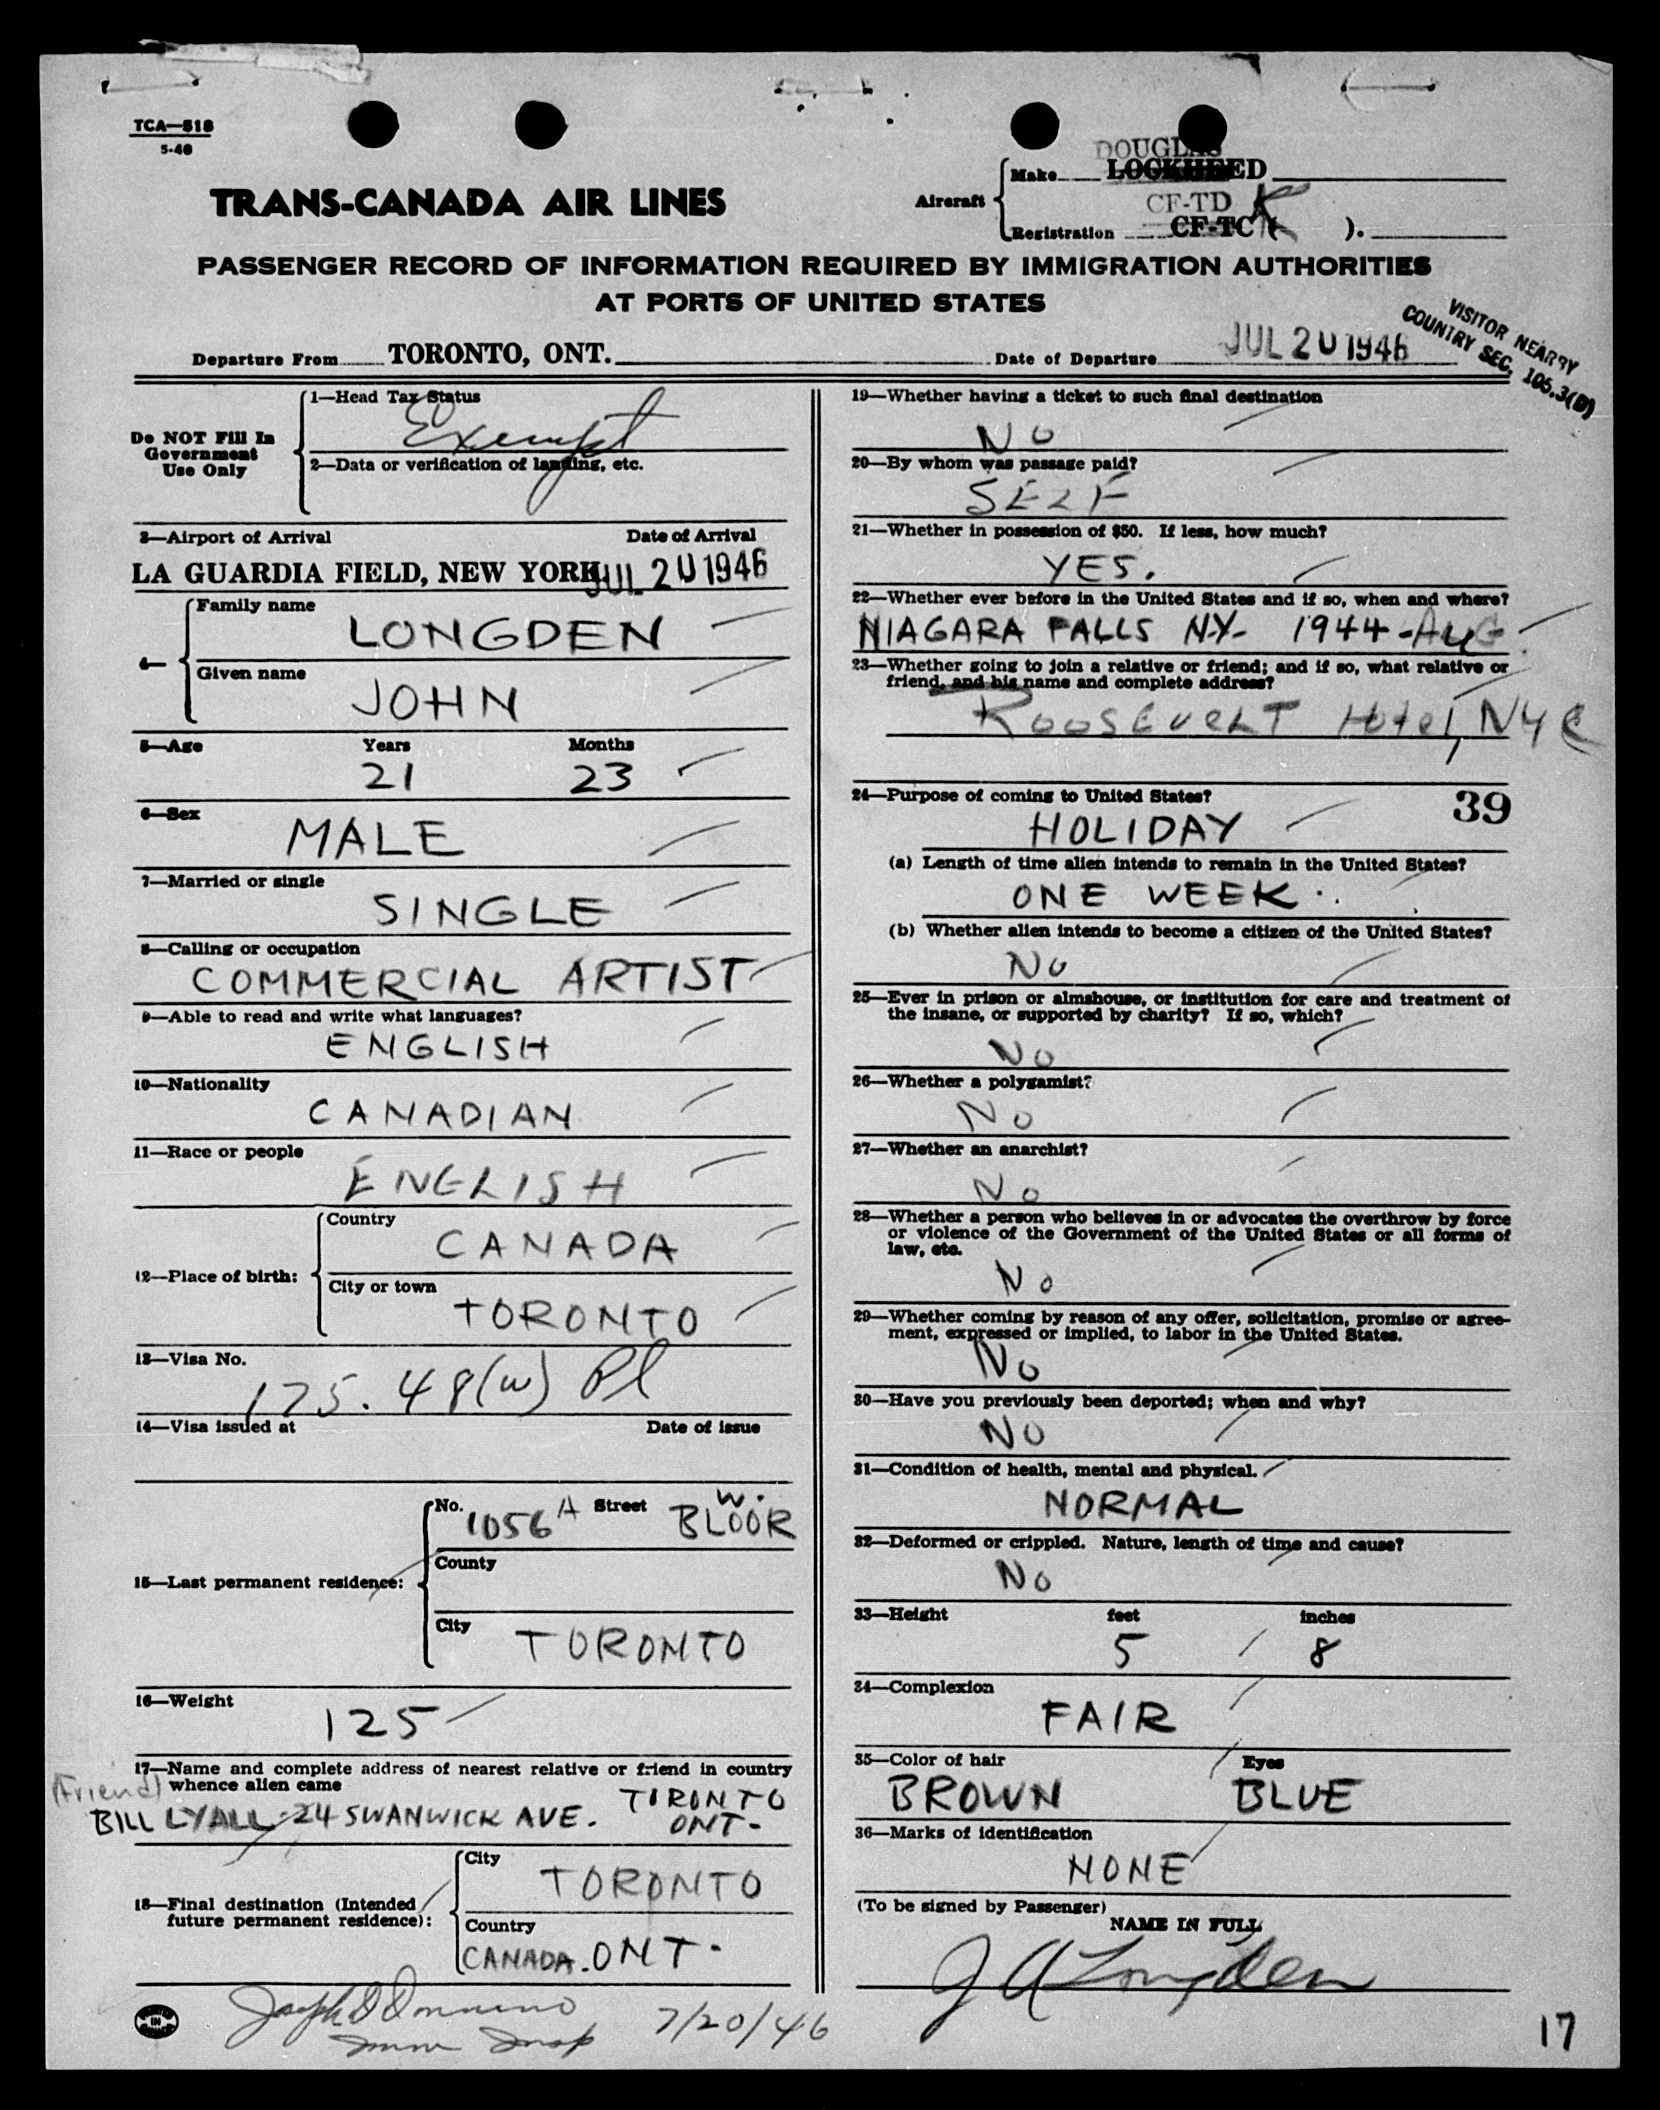 TCA—518
5-46
TRANS-CANADA AIR LINES
Aircraft
Make
DOUGLAS
LOCKHEED
CF-TD K
Registration CF-TC ( ).
PASSENGER RECORD OF INFORMATION REQUIRED BY IMMIGRATION AUTHORITIES
AT PORTS OF UNITED STATES
VISITOR NEARBY
COUNTRY SEC. 105.3(D)
Departure From TORONTO, ONT. Date of Departure JUL 20 1946
Do NOT Fill In
Government
Use Only
1—Head Tax Status
Exempt
2—Data or verification of landing, etc.
3—Airport of Arrival Date of Arrival
LA GUARDIA FIELD, NEW YORK JUL 20 1946
4—
Family name
LONGDEN
Given name
JOHN
5—Age Years Months
21 23
6—Sex
MALE
7—Married or single
SINGLE
8—Calling or occupation
COMMERCIAL ARTIST
9—Able to read and write what languages?
ENGLISH
10—Nationality
CANADIAN
11—Race or people
ENGLISH
12—Place of birth:
Country
CANADA
City or town
TORONTO
13—Visa No.
175.48(w) Pl
14—Visa issued at Date of issue
15—Last permanent residence:
No. 1056 A Street BLOOR W.
County
City
TORONTO
16—Weight
125
17—Name and complete address of nearest relative or friend in country
whence alien came
(Friend)
BILL LYALL - 24 SWANWICK AVE. TORONTO
ONT-
18—Final destination (Intended
future permanent residence):
City
TORONTO
Country
CANADA. ONT.
7/20/46
19—Whether having a ticket to such final destination
NO
20—By whom was passage paid?
SELF
21—Whether in possession of $50. If less, how much?
YES.
22—Whether ever before in the United States and if so, when and where?
NIAGARA FALLS N.Y- 1944-AUG.
23—Whether going to join a relative or friend; and if so, what relative or
friend, and his name and complete address?
ROOSEVELT Hotel, NYC
24—Purpose of coming to United States? 39
HOLIDAY
(a) Length of time alien intends to remain in the United States?
ONE WEEK.
(b) Whether alien intends to become a citizen of the United States?
NO
25—Ever in prison or almshouse, or institution for care and treatment of
the insane, or supported by charity? If so, which?
NO
26—Whether a polygamist?
NO
27—Whether an anarchist?
NO
28—Whether a person who believes in or advocates the overthrow by force
or violence of the Government of the United States or all forms of
law, etc.
NO
29—Whether coming by reason of any offer, solicitation, promise or agree-
ment, expressed or implied, to labor in the United States.
NO
30—Have you previously been deported; when and why?
NO
31—Condition of health, mental and physical.
NORMAL
32—Deformed or crippled. Nature, length of time and cause?
NO
33—Height feet inches
5 8
34—Complexion
FAIR
35—Color of hair Eyes
BROWN BLUE
36—Marks of identification
NONE
(To be signed by Passenger)
NAME IN FULL
J A Longden
17